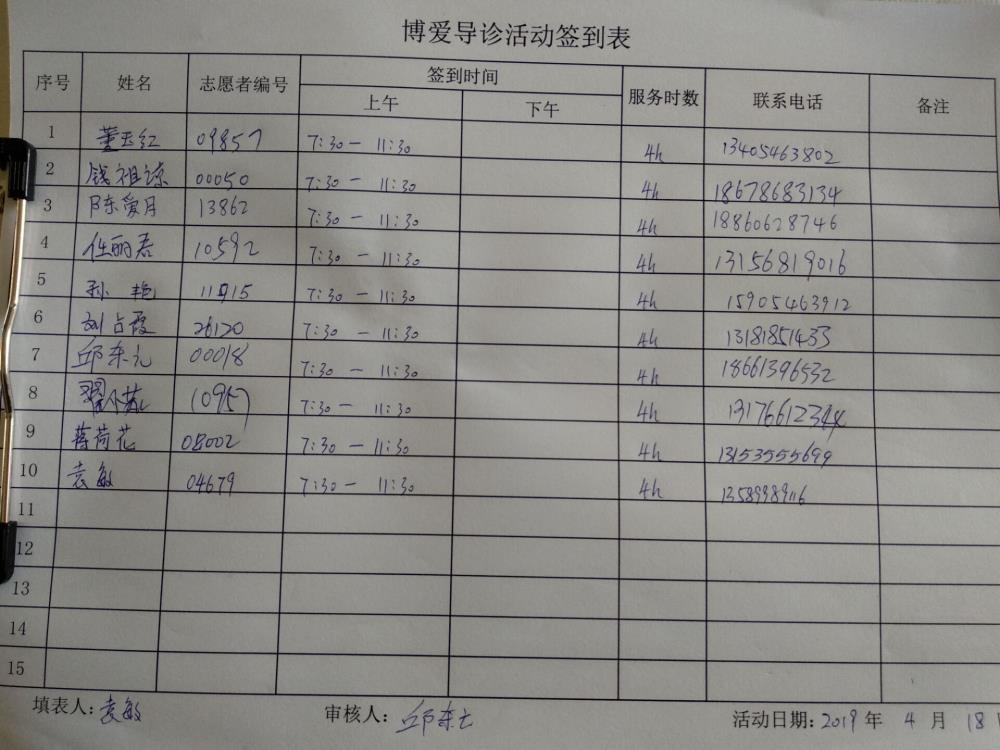 博爱导诊活动签到表
序号 姓名 志愿者编号 签到时间 服务时数 联系电话 备注
上午 下午
1 董玉红 09857 7:30 — 11:30 4h 13405463802
2 钱祖谅 00050 7:30 — 11:30 4h 18678683134
3 陈爱月 13862 7:30 — 11:30 4h 18860628746
4 任丽君 10592 7:30 — 11:30 4h 13156819016
5 孙艳 7:30 — 11:30 4h 15905463912
6 刘占霞 26120 7:30 — 11:30 4h 13181851433
7 邱东元 00018 7:30 — 11:30 4h 18661396532
8 10957 7:30 — 11:30 4h
9 蒋荷花 08002 7:30 — 11:30 4h 13153555699
10 袁敏 04679 7:30 — 11:30 4h 13589989116
11
12
13
14
15
填表人:袁敏 审核人:邱东元 活动日期:2019 年 4 月 18